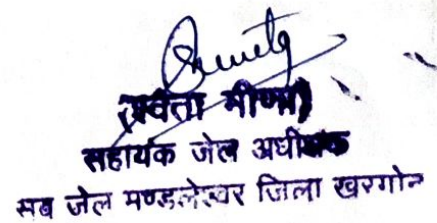 (श्वेता मीणा)
सहायक जेल अधीक्षक
सब जेल मण्डलेश्वर जिला खरगोन